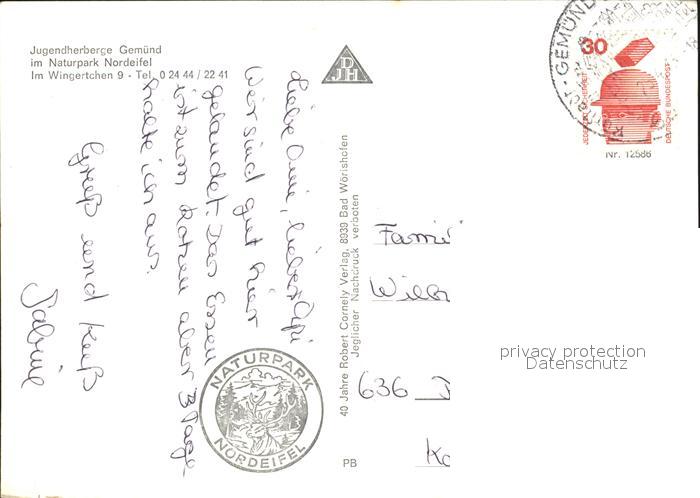 Jugendherberge Gemünd
im Naturpark Nordeifel
Im Wingertchen 9 - Tel. 0 24 44 / 22 41
DJH
Liebe Omi, lieber Opi
Wir sind gut hier
gelandet. Das Essen
ist zum Kotzen aber 3 Tage
halte ich aus.
Gruß und Kuß
Sabine
NATURPARK
NORDEIFEL
40 Jahre Robert Cornely Verlag, 8939 Bad Wörishofen
Jeglicher Nachdruck verboten
PB
GEMÜND
30
JEDERZEIT SICHERHEIT
DEUTSCHE BUNDESPOST
Nr. 12586
Fami
Will
636
Ko
privacy protection
Datenschutz